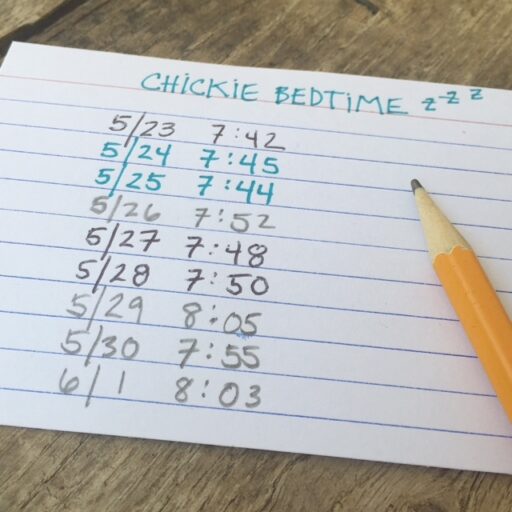 CHiCKiE BEDTiME z z z
5/23 7:42
5/24 7:45
5/25 7:44
5/26 7:52
5/27 7:48
5/28 7:50
5/29 8:05
5/30 7:55
6/1 8:03